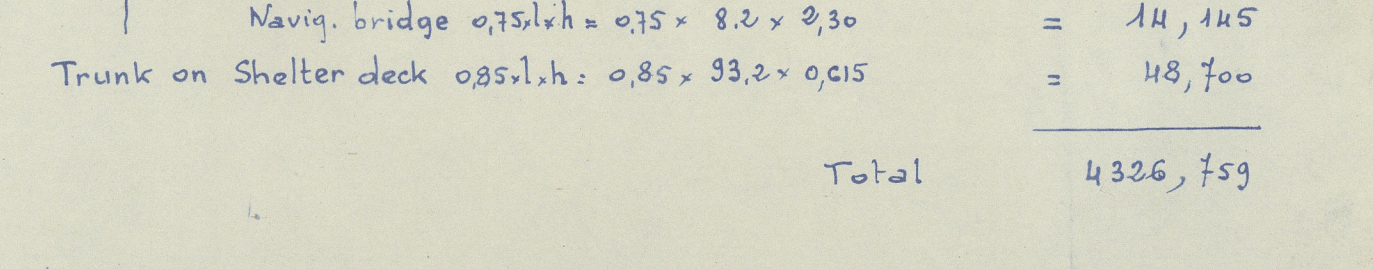 Navig. bridge 0,75×l×h = 0.75 × 8.2 × 2,30 = 14,145
Trunk on Shelter deck 0,85×l×h = 0,85 × 93,2 × 0,615 = 48,700
Total 4326,759